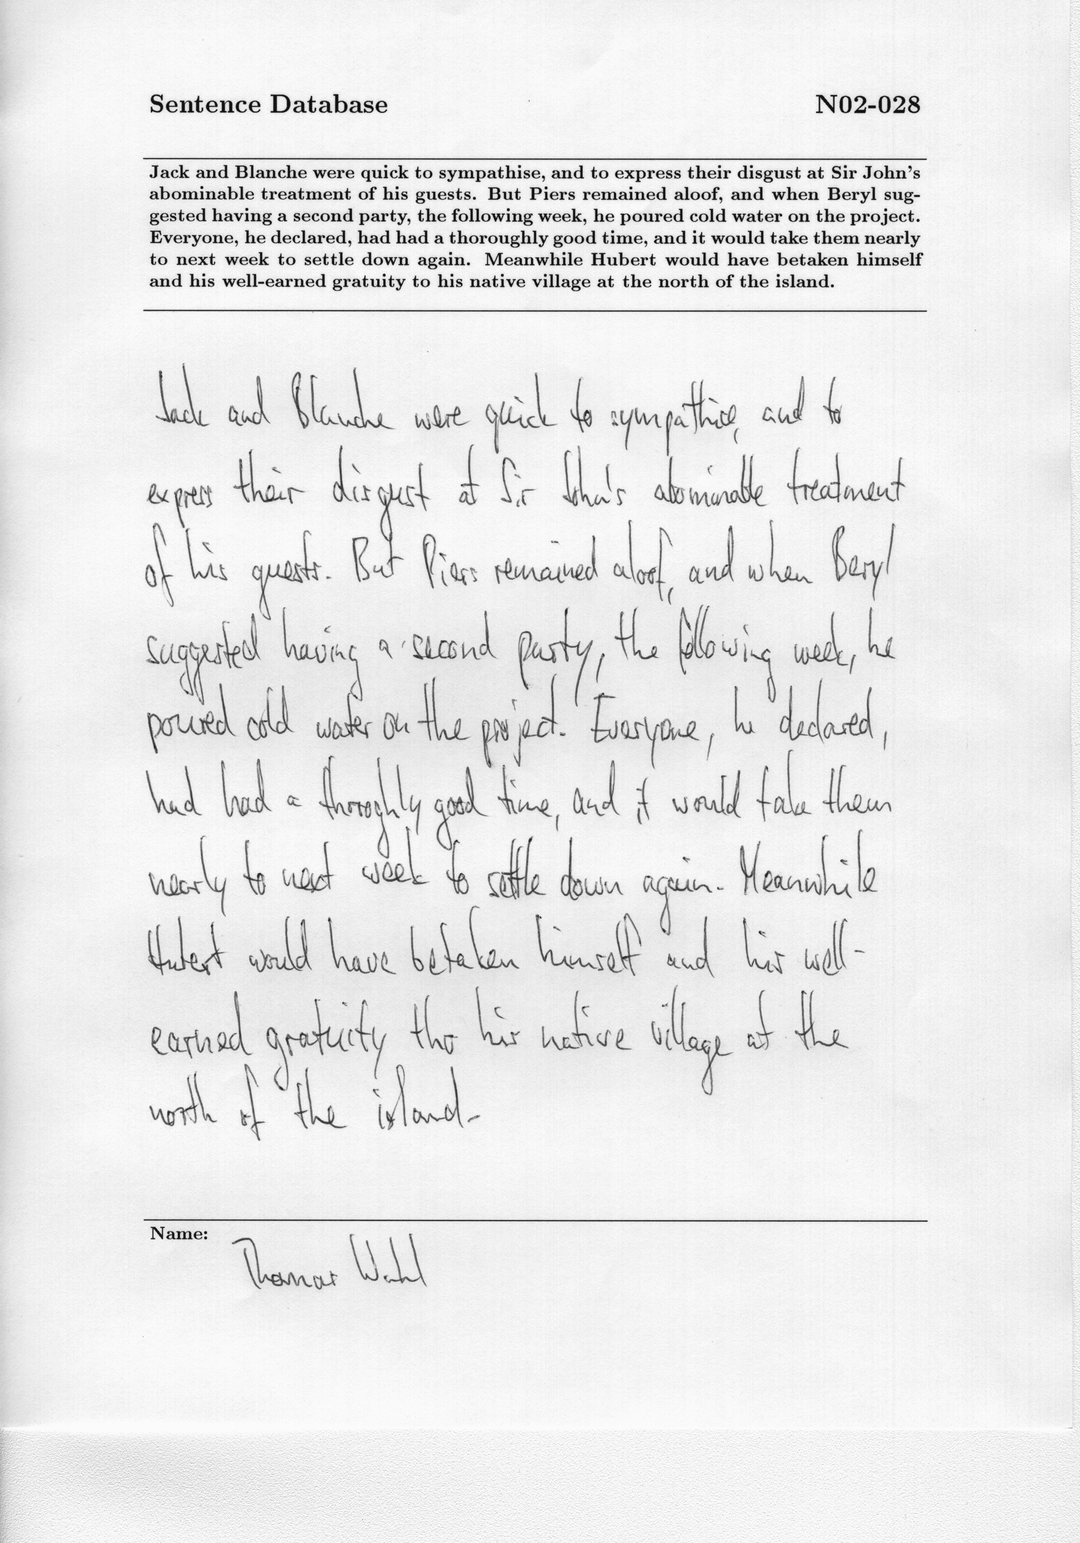 Sentence Database N02-028
Jack and Blanche were quick to sympathise, and to express their disgust at Sir John's
abominable treatment of his guests. But Piers remained aloof, and when Beryl sug-
gested having a second party, the following week, he poured cold water on the project.
Everyone, he declared, had had a thoroughly good time, and it would take them nearly
to next week to settle down again. Meanwhile Hubert would have betaken himself
and his well-earned gratuity to his native village at the north of the island.
Jack and Blanche were quick to sympathise, and to
express their disgust at Sir John's abominable treatment
of his guests. But Piers remained aloof, and when Beryl
suggested having a second party, the following week, he
poured cold water on the project. Everyone, he declared,
had had a throoghly good time, and it would take them
nearly to next week to settle down again. Meanwhile
Hubert would have betaken himself and his well-
earned gratuity tho his native village at the
north of the island.
Name:
Thomas Wahl